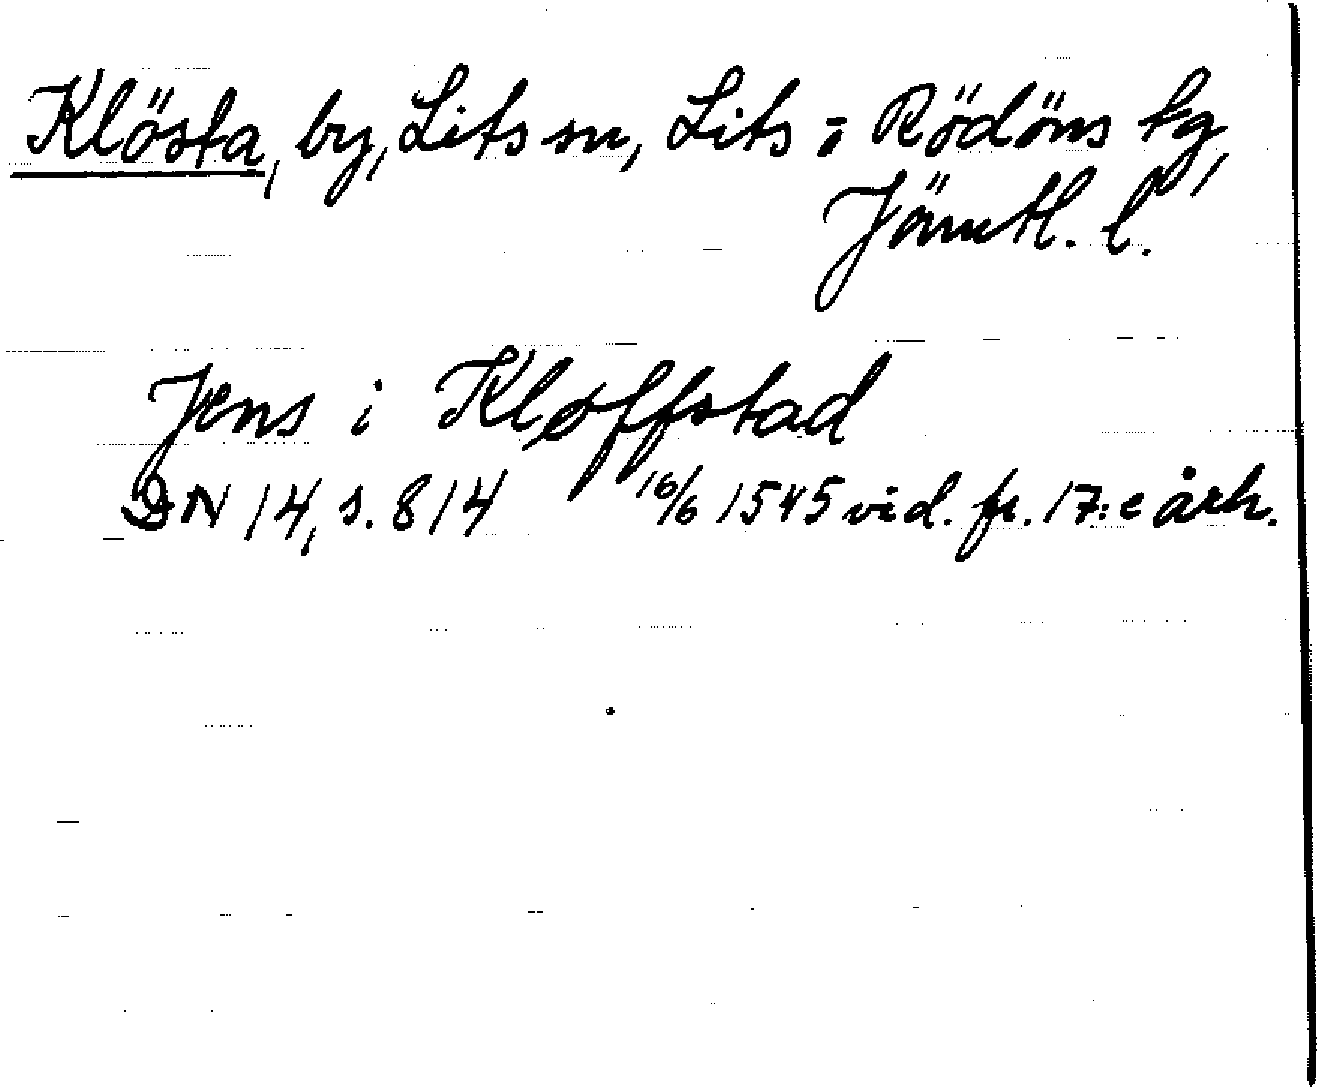 Klösta, by, Lits sn, Lits o Rödöns tg,
Jämtl. l.
Jens i Kløffstad
DN 14, s. 814 16/6 1545 vid. fr. 17:e årh.